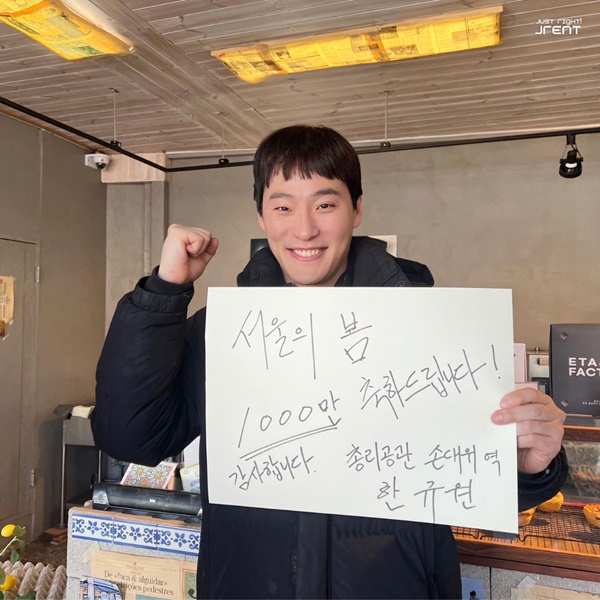 JUST RIGHT!
JRENT
서울의 봄
1000만 축하드립니다!
감사합니다.
총리공관 손대위 역
한규현
ETA
FACT
De «faca & alguidar»
pedestres